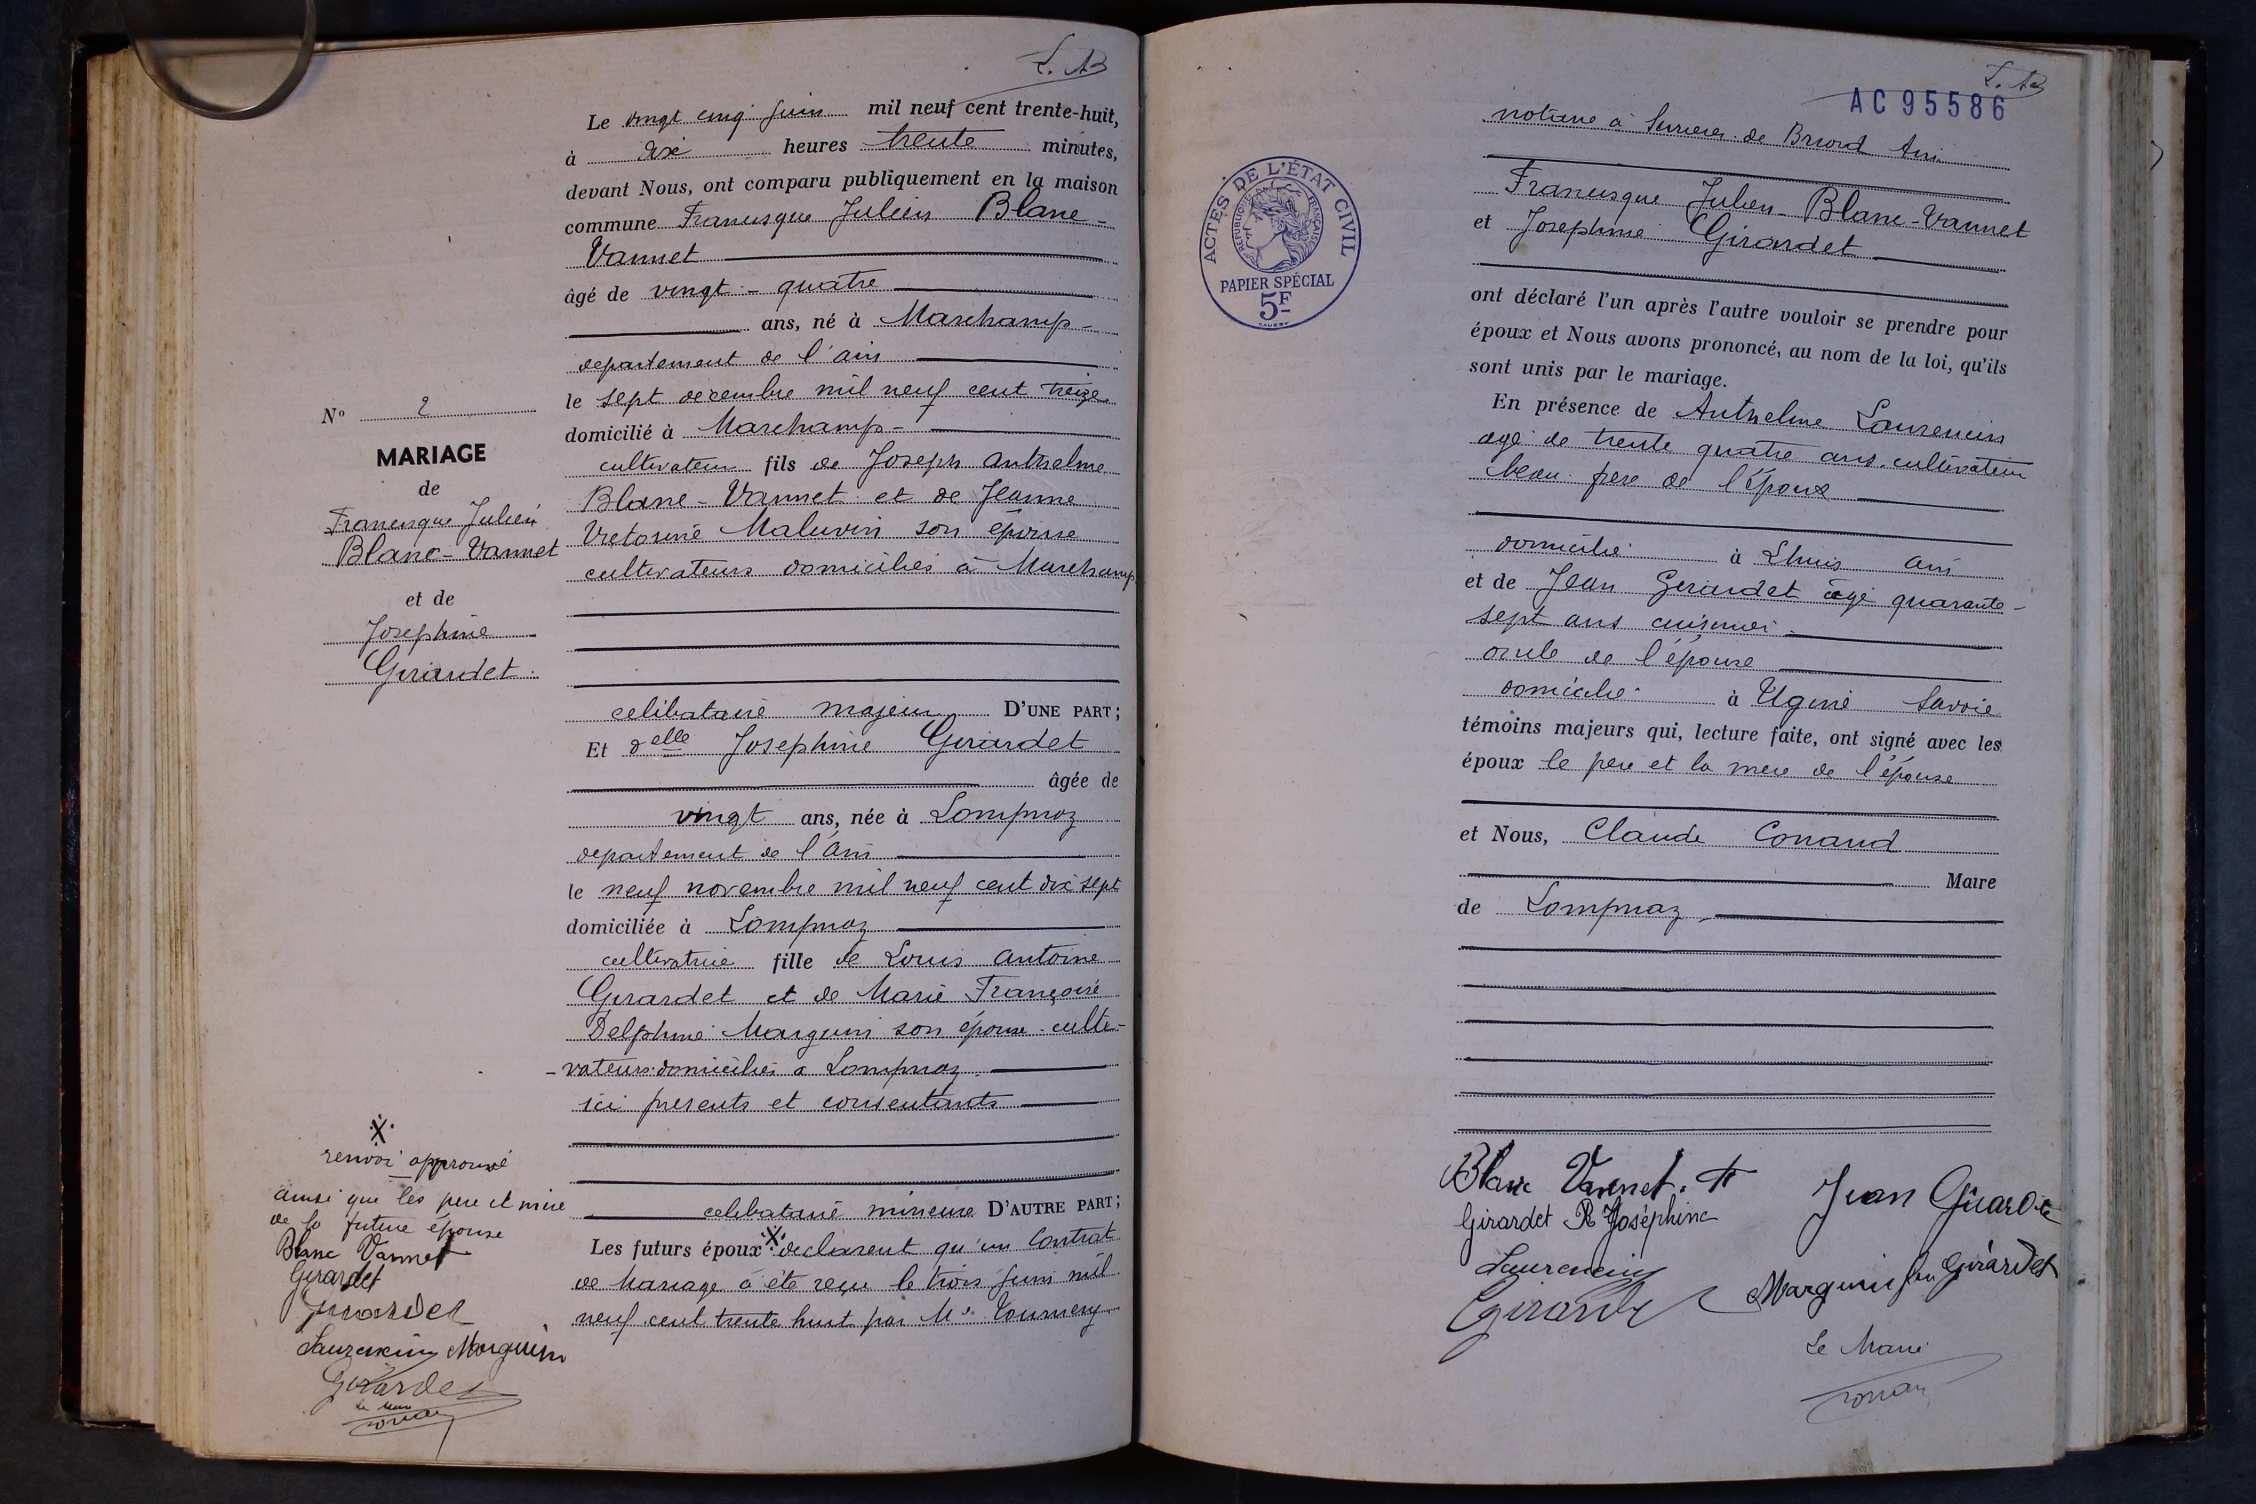 Le vingt cinq juin mil neuf cent trente-huit,
à dix heures trente minutes,
devant Nous, ont comparu publiquement en la maison
commune Francisque Julien Blanc-
Vannet
âgé de vingt-quatre
ans, né à Marchamp-
departement de l'ain
le sept decembre mil neuf cent treize
domicilié à Marchamp-
cultivateur fils de Joseph Anthelme
Blanc-Vannet et de Jeanne
Victorine Maluvin son épouse
cultivateurs domiciliés à Marchamp
celibataire majeur D'UNE PART;
Et delle Josephine Girardet
âgée de
vingt ans, née à Lompnaz
departement de l'Ain
le neuf novembre mil neuf cent dix sept
domiciliée à Lompnaz
cultivatrice fille de Louis Antoine
Girardet et de Marie Françoise
Delphine Marguin son épouse culti-
-vateurs domiciliés a Lompnaz
ici presents et consentants
celibataire mineure D'AUTRE PART;
Les futurs époux declarent qu'un Contrat
de Mariage a éte reçu le trois juin mil
neuf cent trente huit par Me
No 2
MARIAGE
de
Francisque Julien
Blanc-Vannet
et de
Josephine
Girardet
renvoi approuvé
ainsi que les pere et mere
de la future épouse
Blanc Vannet
Girardet
Girardet
Laurencin Marguin
Girardet
Le Maire
Conand
AC95586
notaire à Serrieres de Briord Ain
Francisque Julien Blanc-Vannet
et Josephine Girardet
ont déclaré l'un après l'autre vouloir se prendre pour
époux et Nous avons prononcé, au nom de la loi, qu'ils
sont unis par le mariage.
En présence de Anthelme Laurencin
agé de trente quatre ans, cultivateur
beau frere de l'époux
domicilié à Lhuis Ain
et de Jean Girardet âgé quarante-
sept ans cuisinier
oncle de l'épouse
domicilié à Ugine Savoie
témoins majeurs qui, lecture faite, ont signé avec les
époux le pere et la mere de l'épouse
et Nous, Claude Conand
Maire
de Lompnaz
Blanc Vannet. F
Girardet R Joséphine
Laurencin
Girardet
Jean Girardet
Marguin Girardet
Le Maire
Conand
ACTES DE L'ÉTAT CIVIL
REPUBLIQUE FRANÇAISE
PAPIER SPÉCIAL
5F